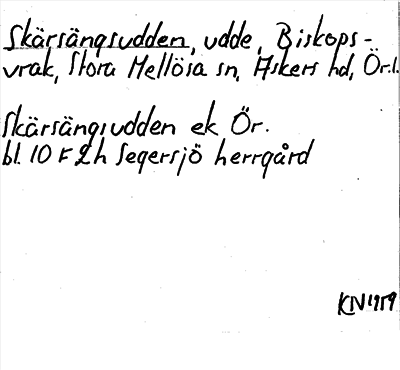 Skärsängsudden, udde, Biskops-
vrak, Stora Mellösa sn, Askers hd, Ör.l.
Skärsängsudden ek Ör.
bl. 10 F 2h Segersjö herrgård
KN 1959